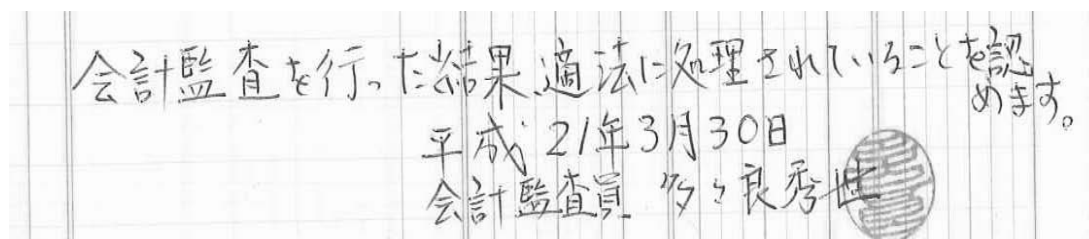 会計監査を行った結果、適法に処理されていることを認
めます。
平成21年3月30日
会計監査員 多々良秀世